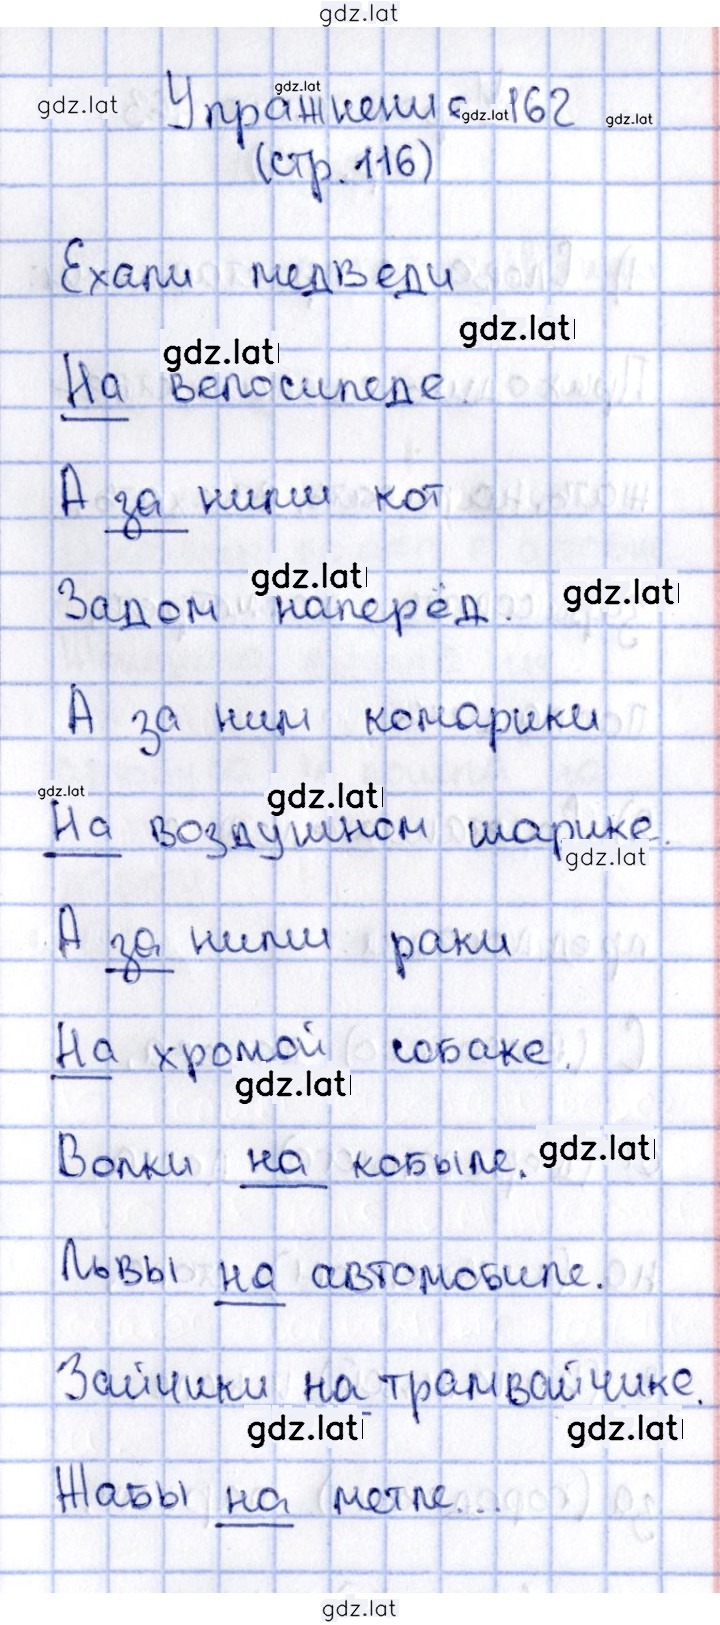 gdz.lat
gdz.lat
gdz.lat Упражнение 162 gdz.lat gdz.lat
(стр. 116)
Ехали медведи
gdz.lat
gdz.lat
На велосипеде.
А за ними кот
gdz.lat gdz.lat
Задом наперёд.
А за ним комарики
gdz.lat gdz.lat
На воздушном шарике.
gdz.lat
А за ними раки
На хромой собаке.
gdz.lat
Волки на кобыле. gdz.lat
Львы на автомобиле.
Зайчики на трамвайчике.
gdz.lat gdz.lat
Жабы на метле...
gdz.lat